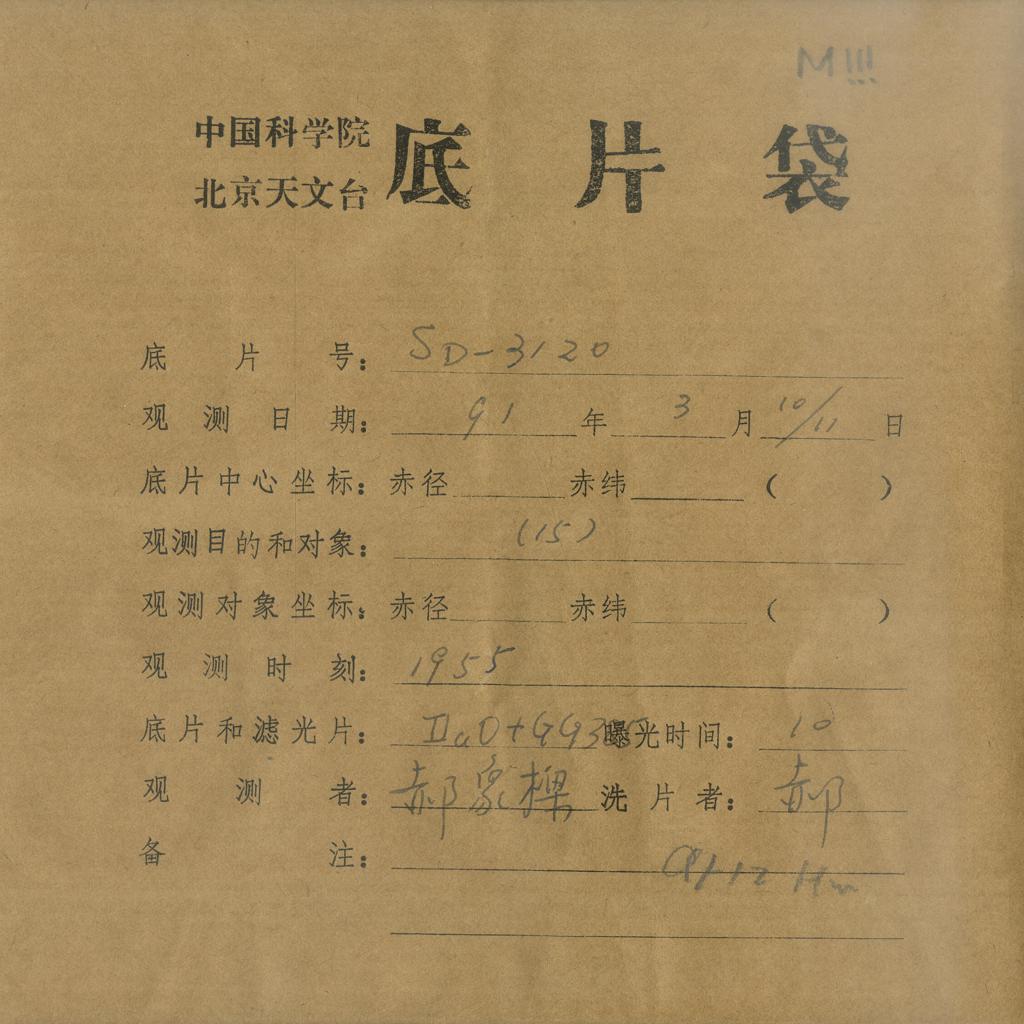 M !!!
中国科学院
北京天文台
底片袋
底片号：SD-3120
观测日期：91年3月10/11日
底片中心坐标：赤径 赤纬 （ ）
观测目的和对象：(15)
观测对象坐标：赤径 赤纬 （ ）
观测时刻：1955
底片和滤光片：IIaD+GG385 曝光时间：10
观测者：郝象樑 洗片者：郝
备注：